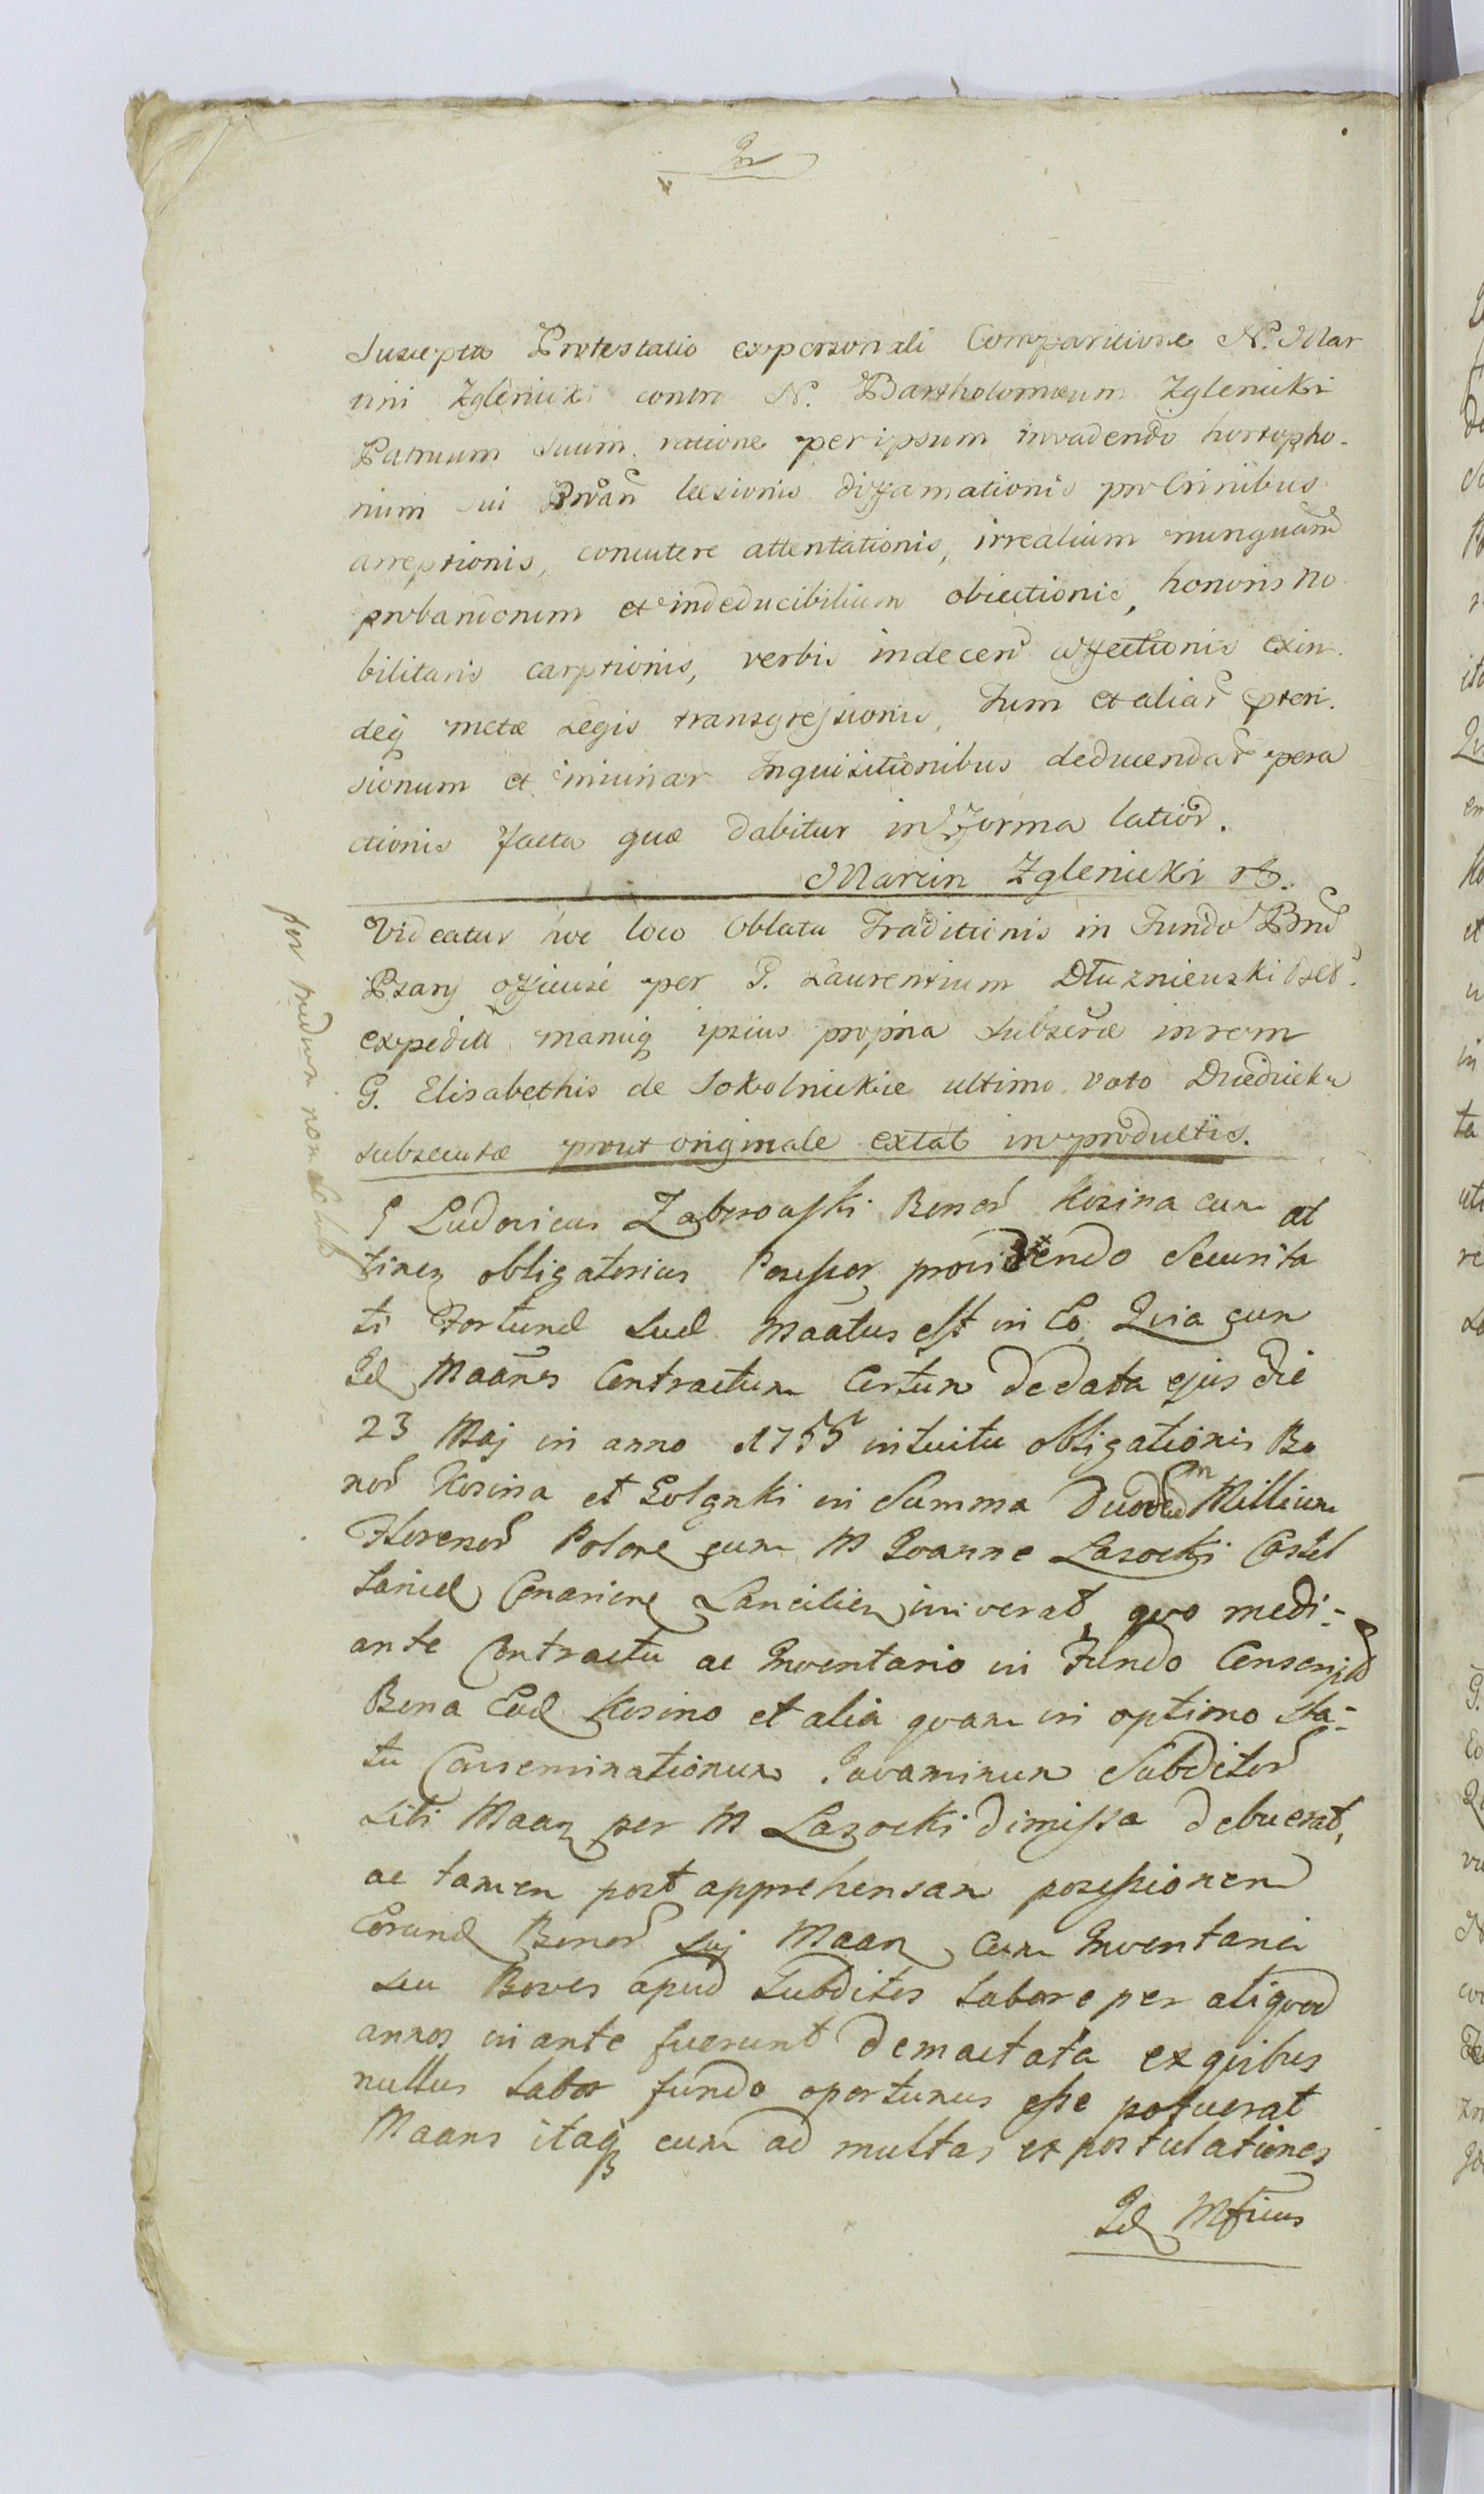 Suscepta Protestatio ex personali Comparitione N. Mar
tini Zglenicki contra N. Bartholomæum Zglenicki
Patruum Suum ratione per ipsum invadendo
sui læsionis diffamationis pro Crinibus
arreptionis, concutere attentationis, irrealium nunquam
probandorum et indeducibilium obiectionis, honoris no
bilitaris carptionis, verbis indecen affectionis exin
deq metæ Legis transgressionis, Tum et aliar præten
sionum et iniuriar Inquisitionibus deducendar pera
ctionis facta quæ dabitur in Forma latiori.
Marcin Zglenicki
Videatur hoc loco Oblata Traditionis in Fundo Bnor
Psary officiose per G. Laurentium Dłuzniewski
expeditæ manuq ipsius propria subscræ in rem
G. Elisabethis de Sokolnickie ultimo voto
subsecutæ prout originale extat in productis.
G Ludovicus Zaborowski Bonor Kosina cum at
tinen obligatorius Possessor providendo Securita
ti Fortunæ Suæ Maatus est in Eo Quia cum
Id Maans Contractum Certum de data ejus die
23 Maj in anno 1755 intuitu obligationis Bo
nor Kosina et in Summa Duodecim Millium
Florenor Polon cum M Joanne Lasocki Castel
laniæ inierat, quo medi-
ante Contractu ac Inventario in Fundo Conscripto
Bona Ead Kosino et alia quam in optimo sta-
tu Conseminationum Subditor
sibi Maan per M Lasocki dimissa debuerat,
ac tamen post apprehensam possessionem
Eorund Bonor suj Maan cum Inventaria
seu Boves apud Subditos labore per aliquod
annos in ante fuerunt demactata ex quibus
nullus labor fundo oportunus esse potuerat
Maans itaq cum ad multas expostulationes
Id Mficus